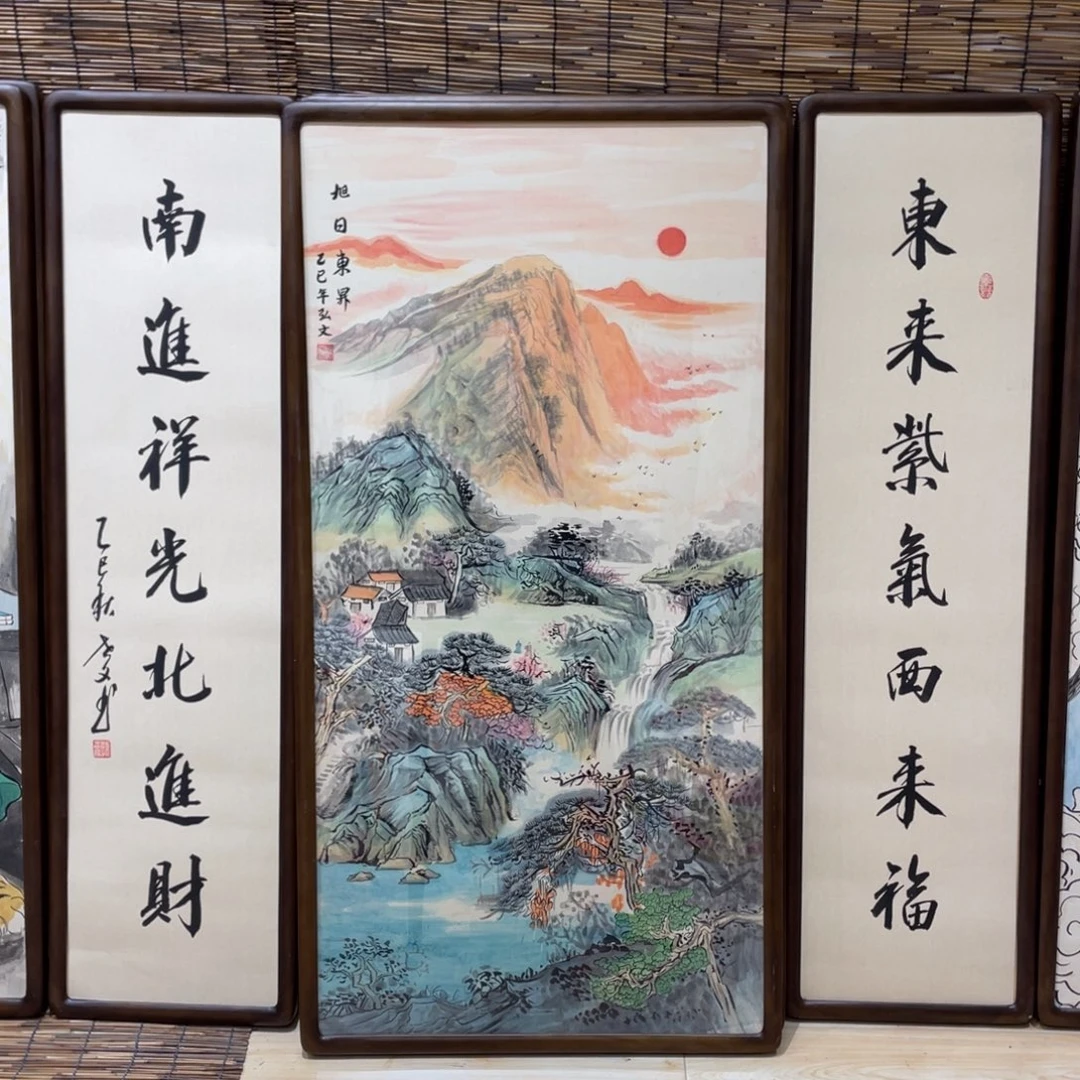 東来紫氣西来福
旭日東昇
乙巳年弘文
南進祥光北進財
乙巳秋